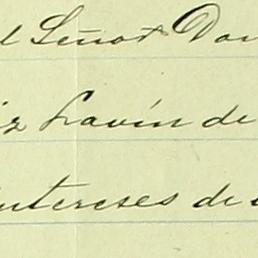 l Señor Don
iz Lavín de
intereses de